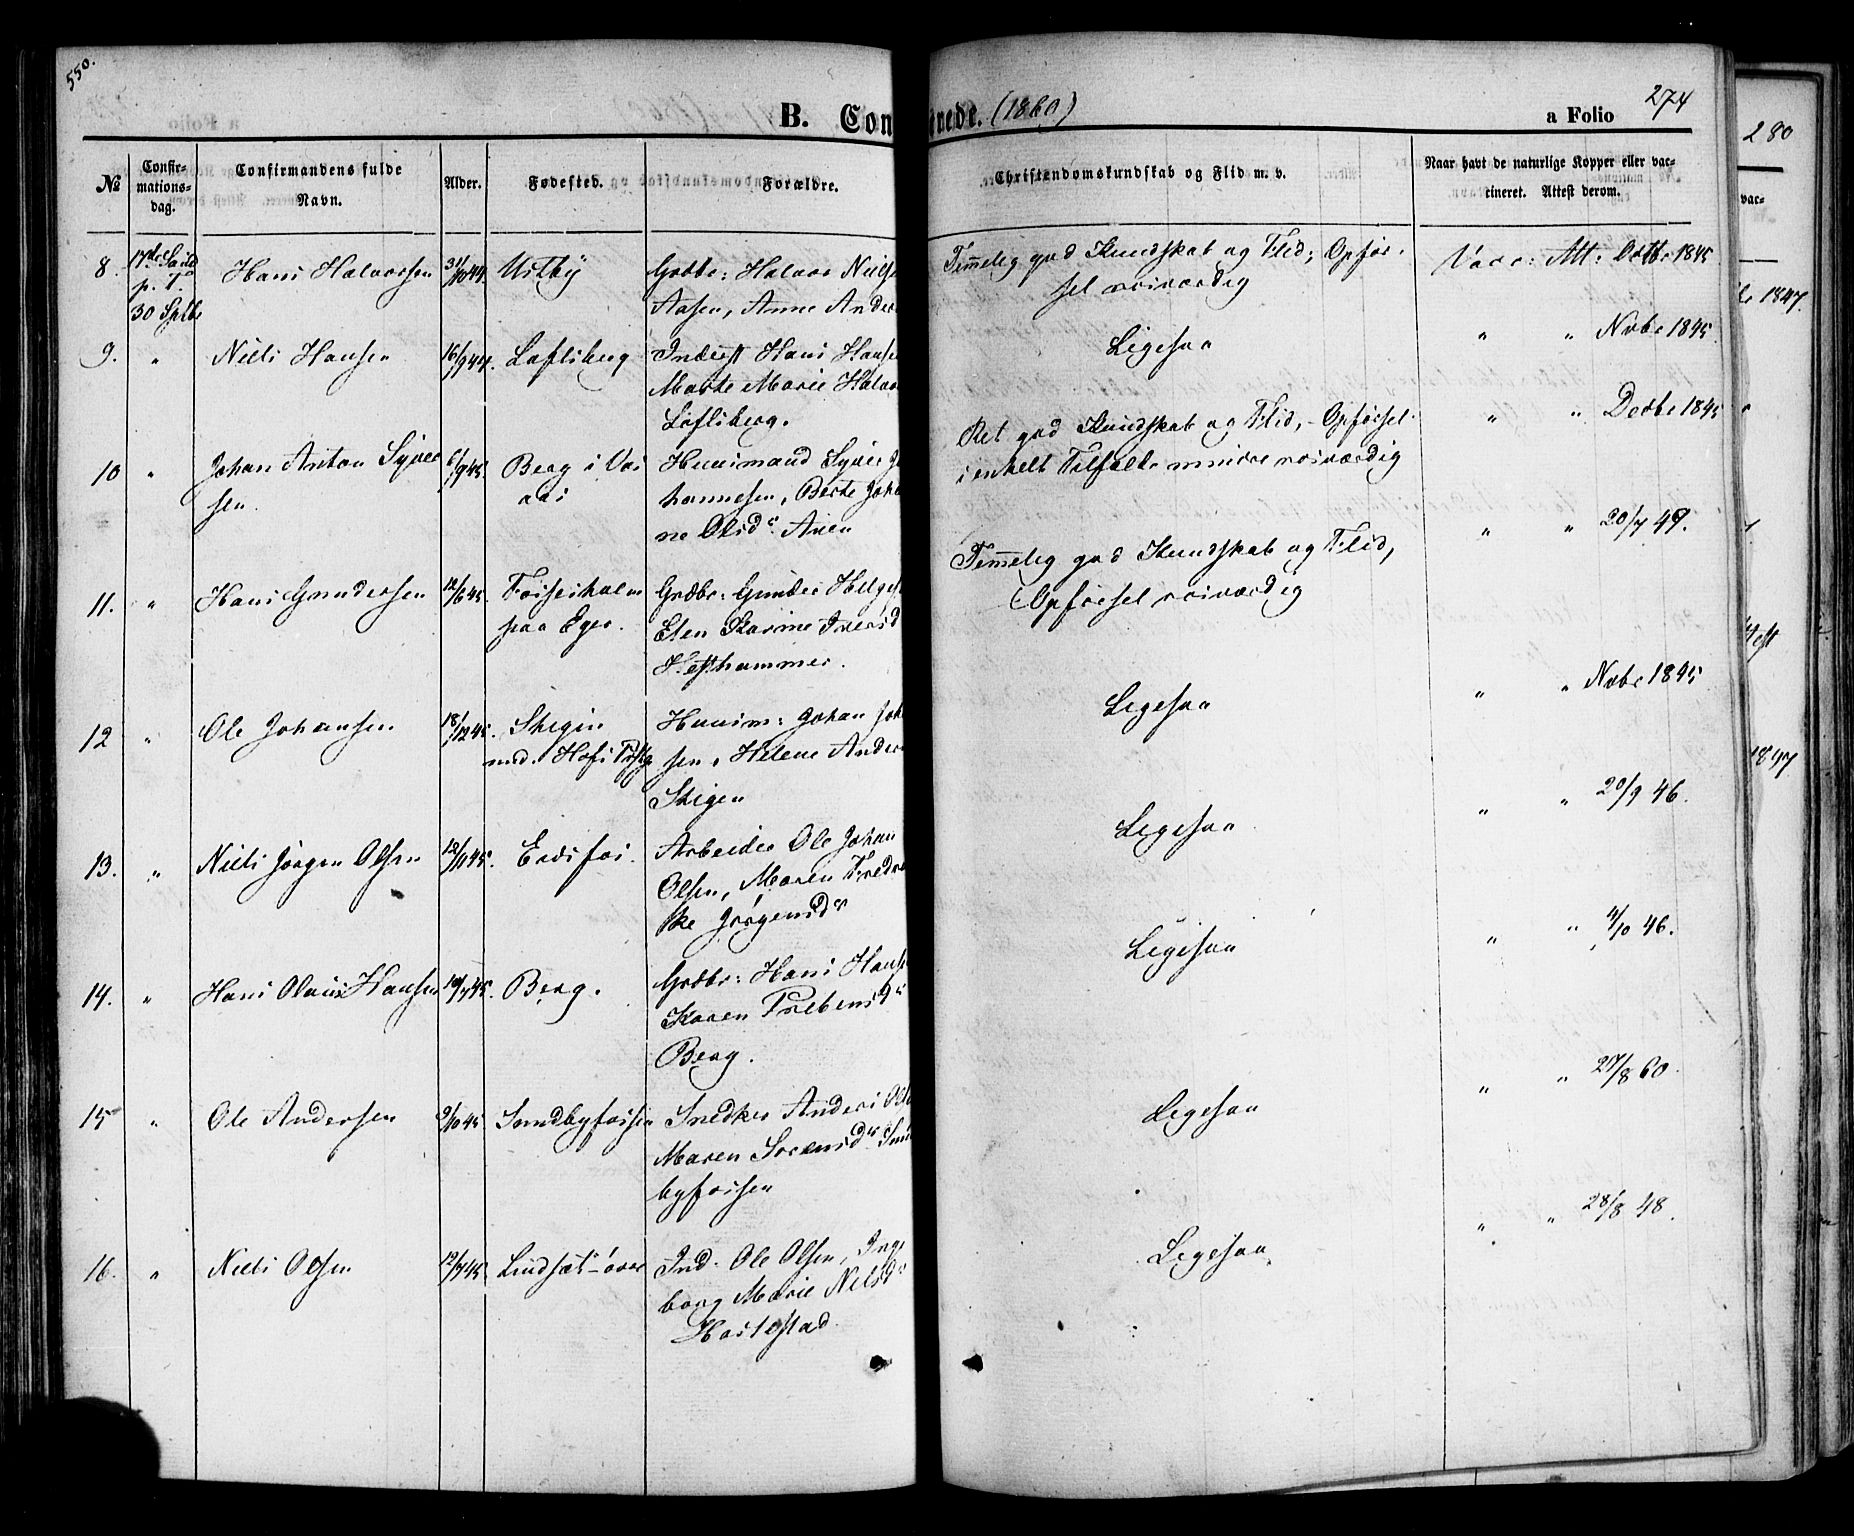 550.
B. Con
irede. (1860)
a Folio 274
280
№
Confir-
mations-
dag.
Confirmandens fulde
Navn.
Alder.
Fødested.
Forældre.
Christendomskundskab og Flid m. v.
Naar havt de naturlige Kopper eller vac-
cineret. Attest derom.
vac-
8. 17de Sønd Hans Halvorsen 31/10 44 Ustby Grdbr: Halvor Niels
p. T. Aasen, Anne Ander
30 Sptbr
Temmelig god Kundskab og Flid; Opfør-
sel rosværdig
Vacc: Att: Octbr 1845
9. " Niels Hansen 16/9 44. Loftsberg Inderst Hans Hanse
Marte Marie Halvo
Loftsberg.
Ligesaa
" " Nvbr 1845.
10 " Johan Anton Syver 6/9 45. Berg i Vas Huusmand Syver Jo
sen. aas hannesen, Berte Joha
ne Olsdr Aaen
Ret god Kundskab og Flid, - Opførsel
i enkelt Tilfælde mindre rosværdig
" " Decbr 1845
11. " Hans Gundersen 12/6 45. Fossesholm Grdbr: Gunder Helges
paa Eger. Elen Karine Iversd
Hesthammer.
Temmelig god Kundskab og Flid,
Opførsel rosværdig
" " 20/7 49.
12 " Ole Johansen 18/12 45. Skigen Huusm: Johan Joh
nd. Hofs Prstg sen, Helene Anders
Skigen
Ligesaa
" " Nvbr 1845
13. " Niels Jørgen Olsen 12/11 45. Eidsfos. Arbeider Ole Johan
Olsen, Maren Fredri
ke Jørgensdr
Ligesaa
" " 20/9 46.
14. " Hans Olaus Hansen 10/7 45. Berg. Grdbr: Hans Hanse
Karen Prebensdr
Berg.
Ligesaa
" " 4/10 46.
15 " Ole Andersen 9/10 45 Sundbyfossen Snedker Anders Olse
Maren Sørensdr Sun
byfossen
Ligesaa
" " 27/8 60.
16. " Niels Olsen 12/9 45. Lindsæt-øvre Ind. Ole Olsen, Inge
borg Marie Nilsdr
Hostestad
Ligesaa
" " 28/8 48.
1847.